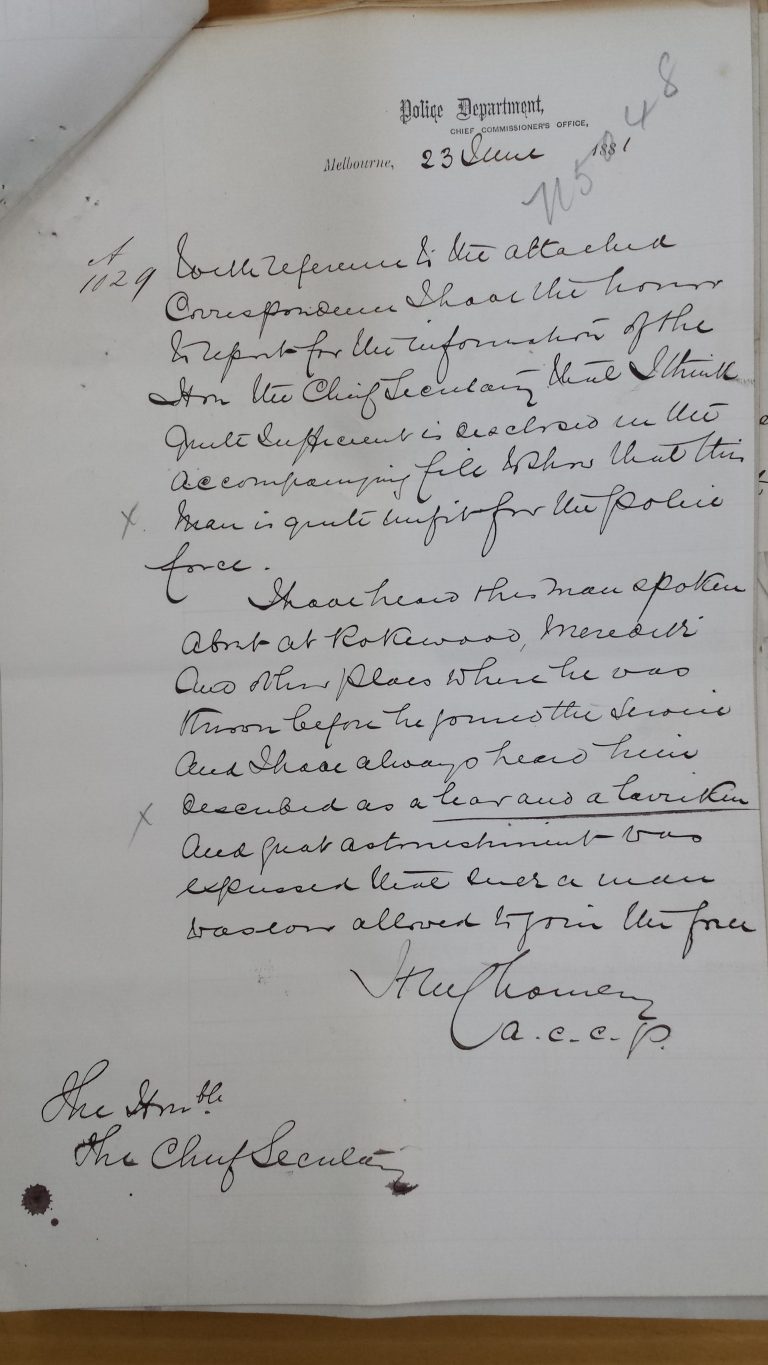 Police Department,
CHIEF COMMISSIONER'S OFFICE,
Melbourne, 23 June 1881
N5048
A
1029
With reference to the attached
Correspondence I have the honor
to report for the information of the
Hon the Chief Secretary that I think
quite sufficient is disclosed in the
accompanying file to show that this
X
man is quite unfit for the police
force.
I have heard this man spoken
about at Rokewood, Meredith
and other places where he was
known before he joined the service
and I have always heard him
X
described as a liar and a larriken
and great astonishment was
expressed that such a man
was ever allowed to join the force
H M Chomley
a.c.c.p.
The Honble
The Chief Secretary